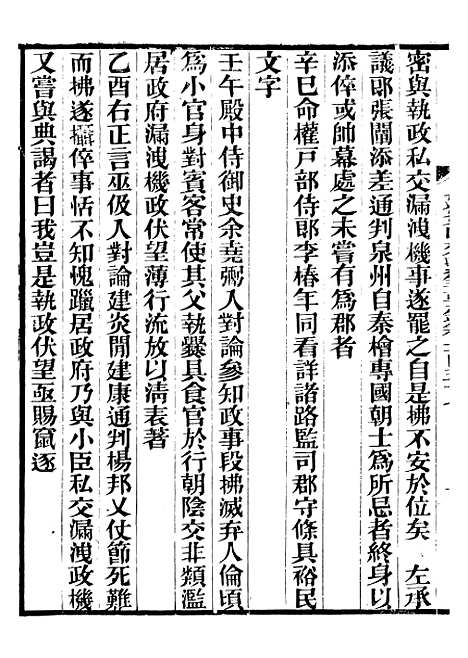 密與執政私交漏洩機事遂罷之自是拂不安於位矣　左承
議郎張闡添差通判泉州自秦檜專國朝士為所忌者終身以
添倅或帥幕處之未嘗有為郡者
辛巳命權戸部侍郎李椿年同看詳諸路監司郡守條具裕民
文字
壬午殿中侍御史余堯弼入對論參知政事段拂滅弃人倫頃
為小官身對賓客常使其父執爨具食官於行朝陰交非類濫
居政府漏洩機政伏望薄行流放以清表著
乙酉右正言巫伋入對論建炎閒建康通判楊邦乂仗節死難
而拂遂攝倅事恬不知愧躐居政府乃與小臣私交漏洩政機
又嘗與典謁者曰我豈是執政伏望亟賜竄逐